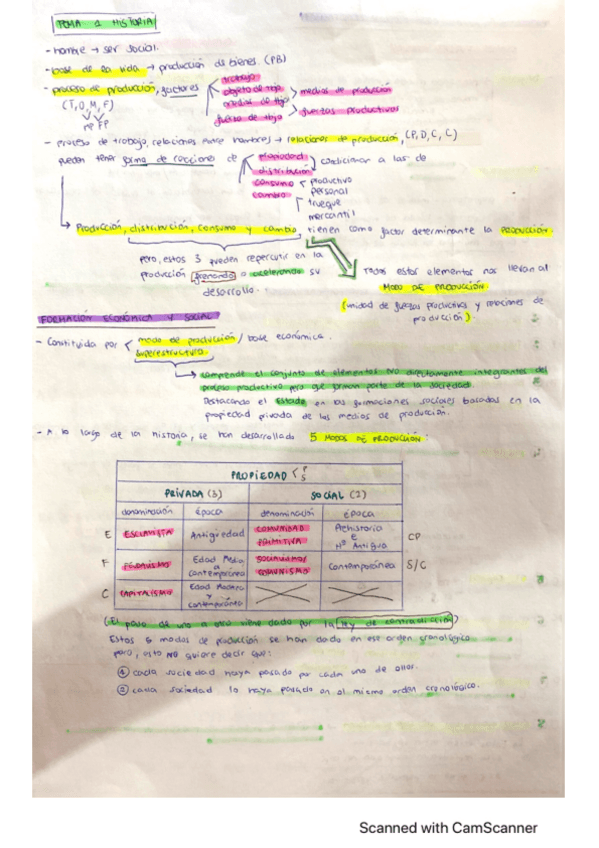 TEMA 1 HISTORIA
- hombre → ser social.
- base de la vida → producción de bienes (PB)
- proceso de producción, factores
trabajo
objeto de tbjo
medios de tbjo
fuerza de tbjo
> medios de producción
> fuerzas productivas
(T, O, M, F)
MP FP
- proceso de trabajo, relaciones entre hombres → relaciones de producción, (P, D, C, C)
pueden tener forma de relaciones de
propiedad
distribución
consumo
cambio
condicionar a las de
productivo
personal
trueque
mercantil
→ Producción, distribución, consumo y cambio, tienen como factor determinante la PRODUCCIÓN.
pero, estos 3 pueden repercutir en la
producción frenando o acelerando su
desarrollo.
Todos estos elementos nos llevan al
MODO DE PRODUCCIÓN.
(unidad de fuerzas productivas y relaciones de
producción).
FORMACIÓN ECONÓMICA Y SOCIAL
- Constituida por < modo de producción / base económica.
superestructura.
→ comprende el conjunto de elementos no directamente integrantes del
proceso productivo pero que forman parte de la sociedad.
Destacando el Estado en las formaciones sociales basadas en la
propiedad privada de los medios de producción.
- A lo largo de la historia, se han desarrollado 5 MODOS DE PRODUCCIÓN:
PROPIEDAD < P S
PRIVADA (3) SOCIAL (2)
denominación época denominación época
E ESCLAVISTA Antigüedad COMUNIDAD PRIMITIVA Prehistoria e Hª Antigua CP
F FEUDALISMO Edad Media a contemporánea SOCIALISMO/ COMUNISMO Contemporánea S/C
C CAPITALISMO Edad Moderna y contemporánea
(El paso de uno a otro viene dado por la ley de contradicción)
Estos 5 modos de producción se han dado en ese orden cronológico
pero, esto NO quiere decir que:
1 cada sociedad haya pasado por cada uno de ellos.
2 cada sociedad lo haya pasado en el mismo orden cronológico.
Scanned with CamScanner